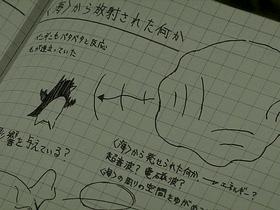 〈海〉から放射された何か
インチにもバタバタと反応
もが違っていた
影響を与えている?
〈海〉から発せられた何か
→エネルギー?
超音波? 電磁波?
〈海〉の周りの空間をゆがめ